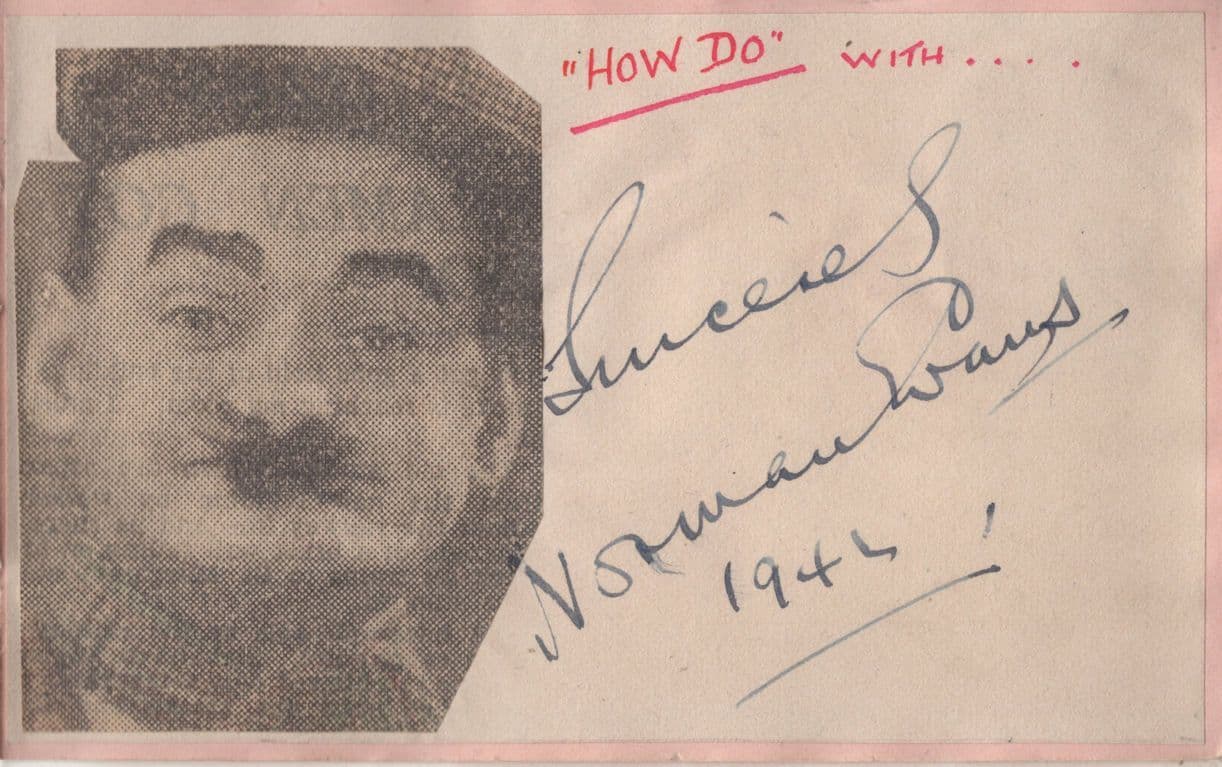 "HOW DO" WITH....
Sincerely
Norman Evans
1942